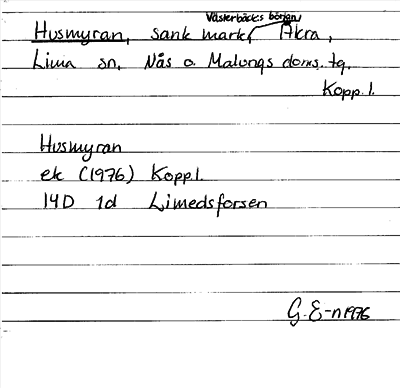 Västerbäcks början
Husmyran, sank mark, Åkra,
Lima sn. Nås o. Malungs doms. tg.
Kopp. l.
Husmyran
ek (1976) Kopp.l.
14D 1d Limedsforsen
G. E-n 1976